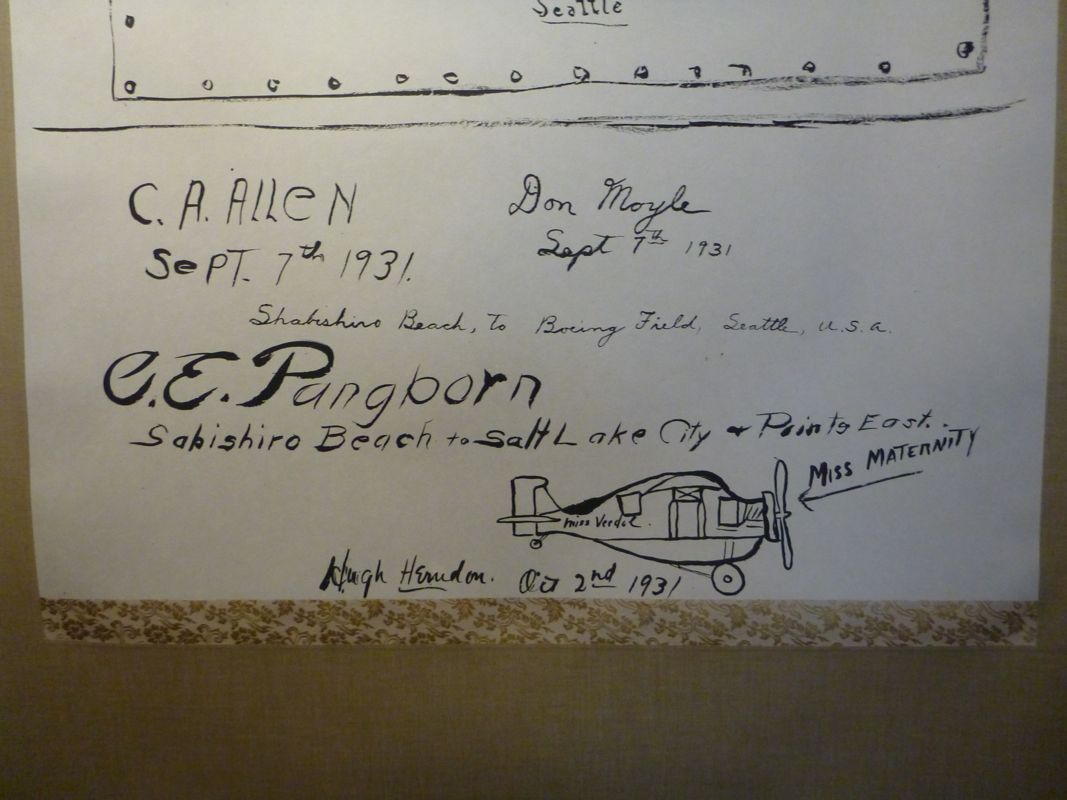 Seattle
C. A. ALLeN
Don Moyle
SePT. 7th 1931.
Sept 7th 1931
Shabishiro Beach, To Boeing Field, Seattle, U.S.A.
C.E. Pangborn
Sabishiro Beach to Salt Lake City & Points East.
MISS MATERNITY
Miss Veedol.
Hugh Herndon. Oct 2nd 1931